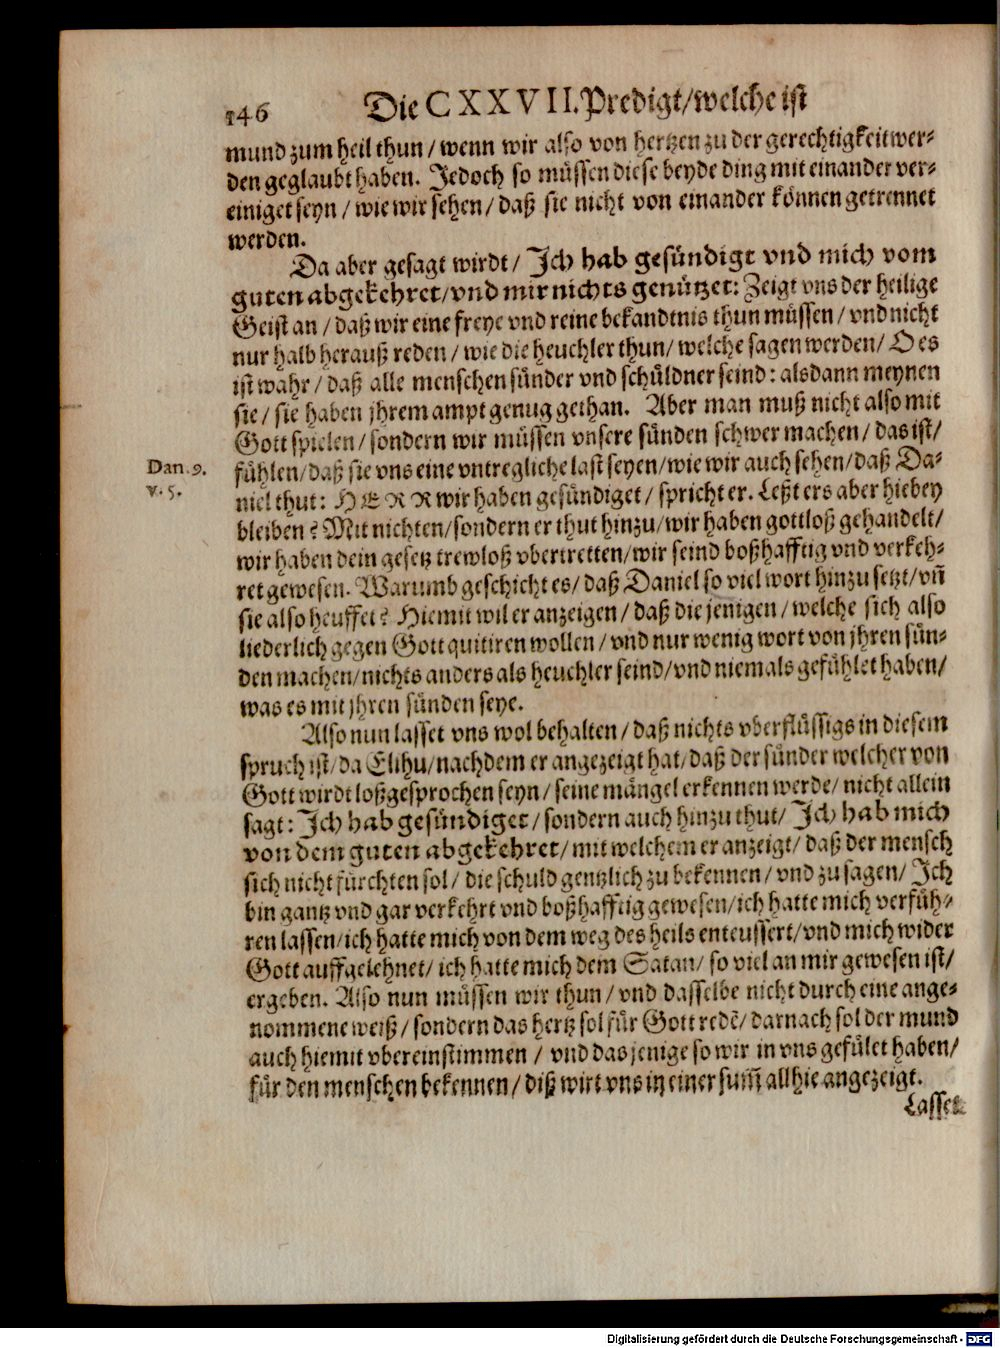 146 Die CXXVII. Predigt/welche ist
mund zum heil thun/wenn wir also von hertzen zu der gerechtigkeit wer-
den geglaubt haben. Jedoch so müssen diese beyde ding mit einander ver-
einiget seyn/wie wir sehen/daß sie nicht von einander können getrennet
werden.
Da aber gesagt wirdt/Ich hab gesündigt vnd mich vom
guten abgekehret/vnd mir nichts genützet: Zeigt vns der heilige
Geist an/daß wir eine freye vnd reine bekandtnis thun müssen/vnd nicht
nur halb herauß reden/wie die heuchler thun/welche sagen werden/O es
ist wahr/daß alle menschen sünder vnd schüldner seind: alsdann meynen
sie/sie haben jhrem ampt genug gethan. Aber man muß nicht also mit
Gott spielen/sondern wir müssen vnsere sünden schwer machen/das ist/
Dan. 9.
v. 5.
fühlen/daß sie vns eine vntregliche last seyen/wie wir auch sehen/daß Da-
niel thut: HERR wir haben gesündiget/spricht er. Leßt ers aber hiebey
bleiben? Mit nichten/sondern er thut hinzu/wir haben gottloß gehandelt/
wir haben dein gesetz trewloß vbertretten/wir seind boßhafftig vnd verkeh-
ret gewesen. Warumb geschicht es/daß Daniel so viel wort hinzu setzt/vñ
sie also heuffet? Hiemit wil er anzeigen/daß die jenigen/welche sich also
liederlich gegen Gott quitiren wollen/vnd nur wenig wort von jhren sün-
den machen/nichts anders als heuchler seind/vnd niemals gefühlet haben/
was es mit jhren sünden seye.
Also nun lasset vns wol behalten/daß nichts vberflüssigs in diesem
spruch ist/da Elihu/nachdem er angezeigt hat/daß der sünder welcher von
Gott wirdt loßgesprochen seyn/seine mängel erkennen werde/nicht allein
sagt: Ich hab gesündiget/sondern auch hinzu thut/Ich hab mich
von dem guten abgekehret/mit welchem er anzeigt/daß der mensch
sich nicht fürchten sol/die schuld gentzlich zu bekennen/vnd zu sagen/Ich
bin gantz vnd gar verkehrt vnd boßhafftig gewesen/ich hatte mich verfüh-
ren lassen/ich hatte mich von dem weg des heils enteussert/vnd mich wider
Gott auffgelehnet/ich hatte mich dem Satan/so viel an mir gewesen ist/
ergeben. Also nun müssen wir thun/vnd dasselbe nicht durch eine ange-
nommene weiß/sondern das hertz sol für Gott redẽ/darnach sol der mund
auch hiemit vbereinstimmen/vnd das jenige so wir in vns gefület haben/
für den menschen bekennen/diß wirt vns in einer sum̃ allhie angezeigt.
Lasset
Digitalisierung gefördert durch die Deutsche Forschungsgemeinschaft - DFG